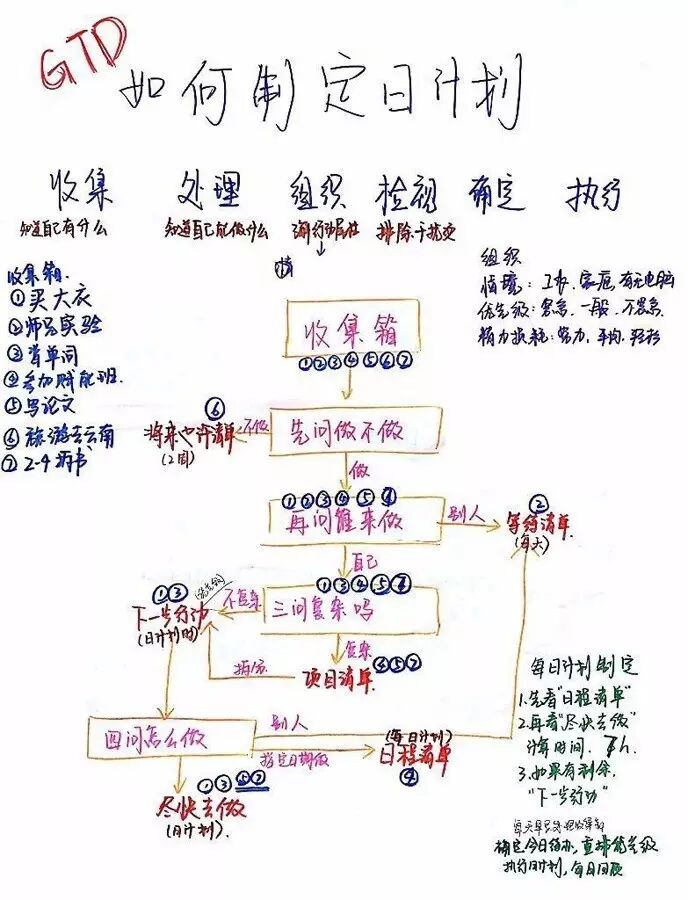 GTD
如何制定日计划
收集 处理 组织 检视 确定 执行
知道自己有什么 知道自己能做什么 排除干扰
组织
情境：工作、家庭、有无电脑
优先级：紧急、一般、不紧急
精力损耗：努力、平均、轻松
收集箱：
①买大衣
②师兄实验
③背单词
④参加赋能班.
⑤写论文
⑥旅游去云南
⑦2-4本书
收集箱
①②③④⑤⑥⑦
⑥
将来也许清单
(2周)
不做
先问做不做
做
①②③④⑤⑦
再问谁来做
别人
②
等待清单
(每天)
自己
①③④⑤⑦
三问复杂吗
不复杂
①③
下一步行动
(日计划时)
复杂
项目清单 ④⑤⑦
拆分
四问怎么做
别人
指定日期做
(每日计划)
日程清单
④
①③⑤⑦
尽快去做
(日计划).
每日计划制定
1.先看"日程清单"
2.再看"尽快去做"
计算时间. 7h
3.如果有剩余,
"下一步行动"
确定今日待办，重排优先级
执行日计划，每日回顾